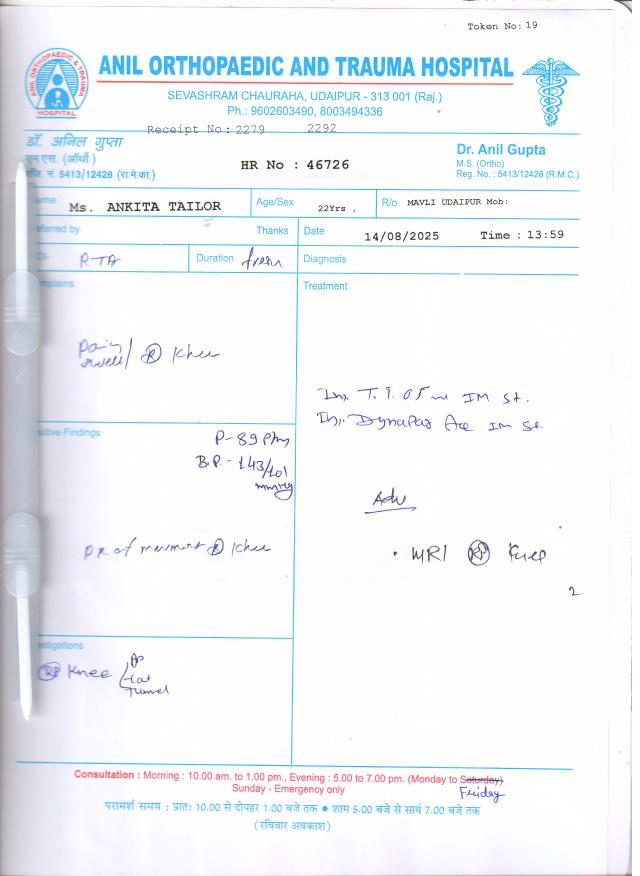 Token No: 19
ANIL ORTHOPAEDIC & TRAUMA
HOSPITAL
ANIL ORTHOPAEDIC AND TRAUMA HOSPITAL
SEVASHRAM CHAURAHA, UDAIPUR - 313 001 (Raj.)
Ph.: 9602603490, 8003494336
Receipt No: 2279 2292
डॉ. अनिल गुप्ता
एम.एस. (ऑर्थो.)
रजि. नं. 5413/12428 (रा.मे.का.)
HR No : 46726
Dr. Anil Gupta
M.S. (Ortho)
Reg. No. : 5413/12428 (R.M.C.)
ame Ms. ANKITA TAILOR Age/Sex 22Yrs , R/o MAVLI UDAIPUR Mob:
eferred by Thanks Date 14/08/2025 Time : 13:59
RTA Duration fresh Diagnosis
mplains Treatment
Pain
swell/ (R) Knee
Inj. T.T. 0.5 ml IM St.
Inj. Dynapar IM St.
sitive Findings
P-89
B.P.- 143/101
mmHg
Adv
(R) Knee
• MRI (Rt) Knee
2
estigations
(Rt) Knee AP
Lat
Tunnel
Consultation : Morning : 10.00 am. to 1.00 pm., Evening : 5.00 to 7.00 pm. (Monday to Saturday)
Friday
Sunday - Emergency only
परामर्श समय : प्रात: 10.00 से दोपहर 1.00 बजे तक • शाम 5.00 बजे से सायं 7.00 बजे तक
(रविवार अवकाश)